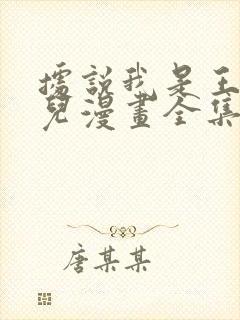 據說我是王
兒漫畫全集
唐某某